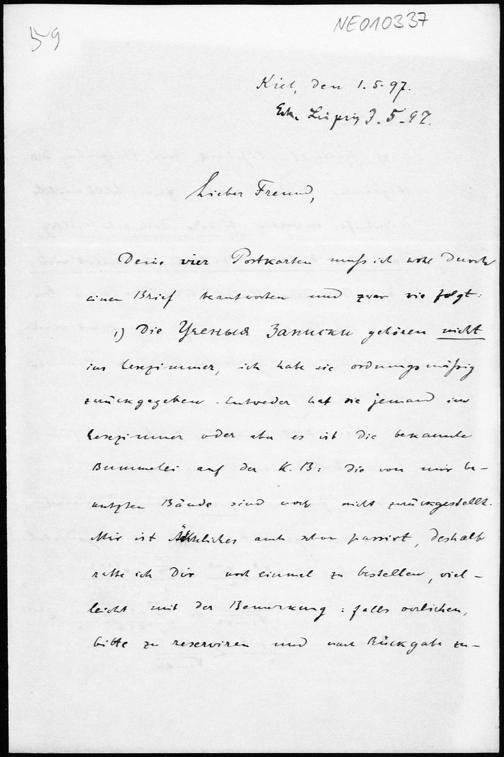 59
NE010337
Kiel, den 1.5.97.
Erh. Leipzig 3.5.97.
Lieber Freund,
Deine vier Postkarten muß ich wohl durch
einen Brief beantworten und zwar wie folgt:
1) Die Ученыя Записки gehören nicht
ins Lesezimmer, ich habe sie ordnungsmäßig
zurückgegeben. Entweder hat sie jemand im
Lesezimmer oder aber es ist die bekannte
Bummelei auf der K.B: die von mir be-
nutzten Bände sind noch nicht zurückgestellt.
Mir ist Ähnliches auch schon passirt, deshalb
rathe ich Dir noch einmal zu bestellen, viel-
leicht mit der Bemerkung: falls verliehen,
bitte zu reserviren und nach Rückgabe zu-